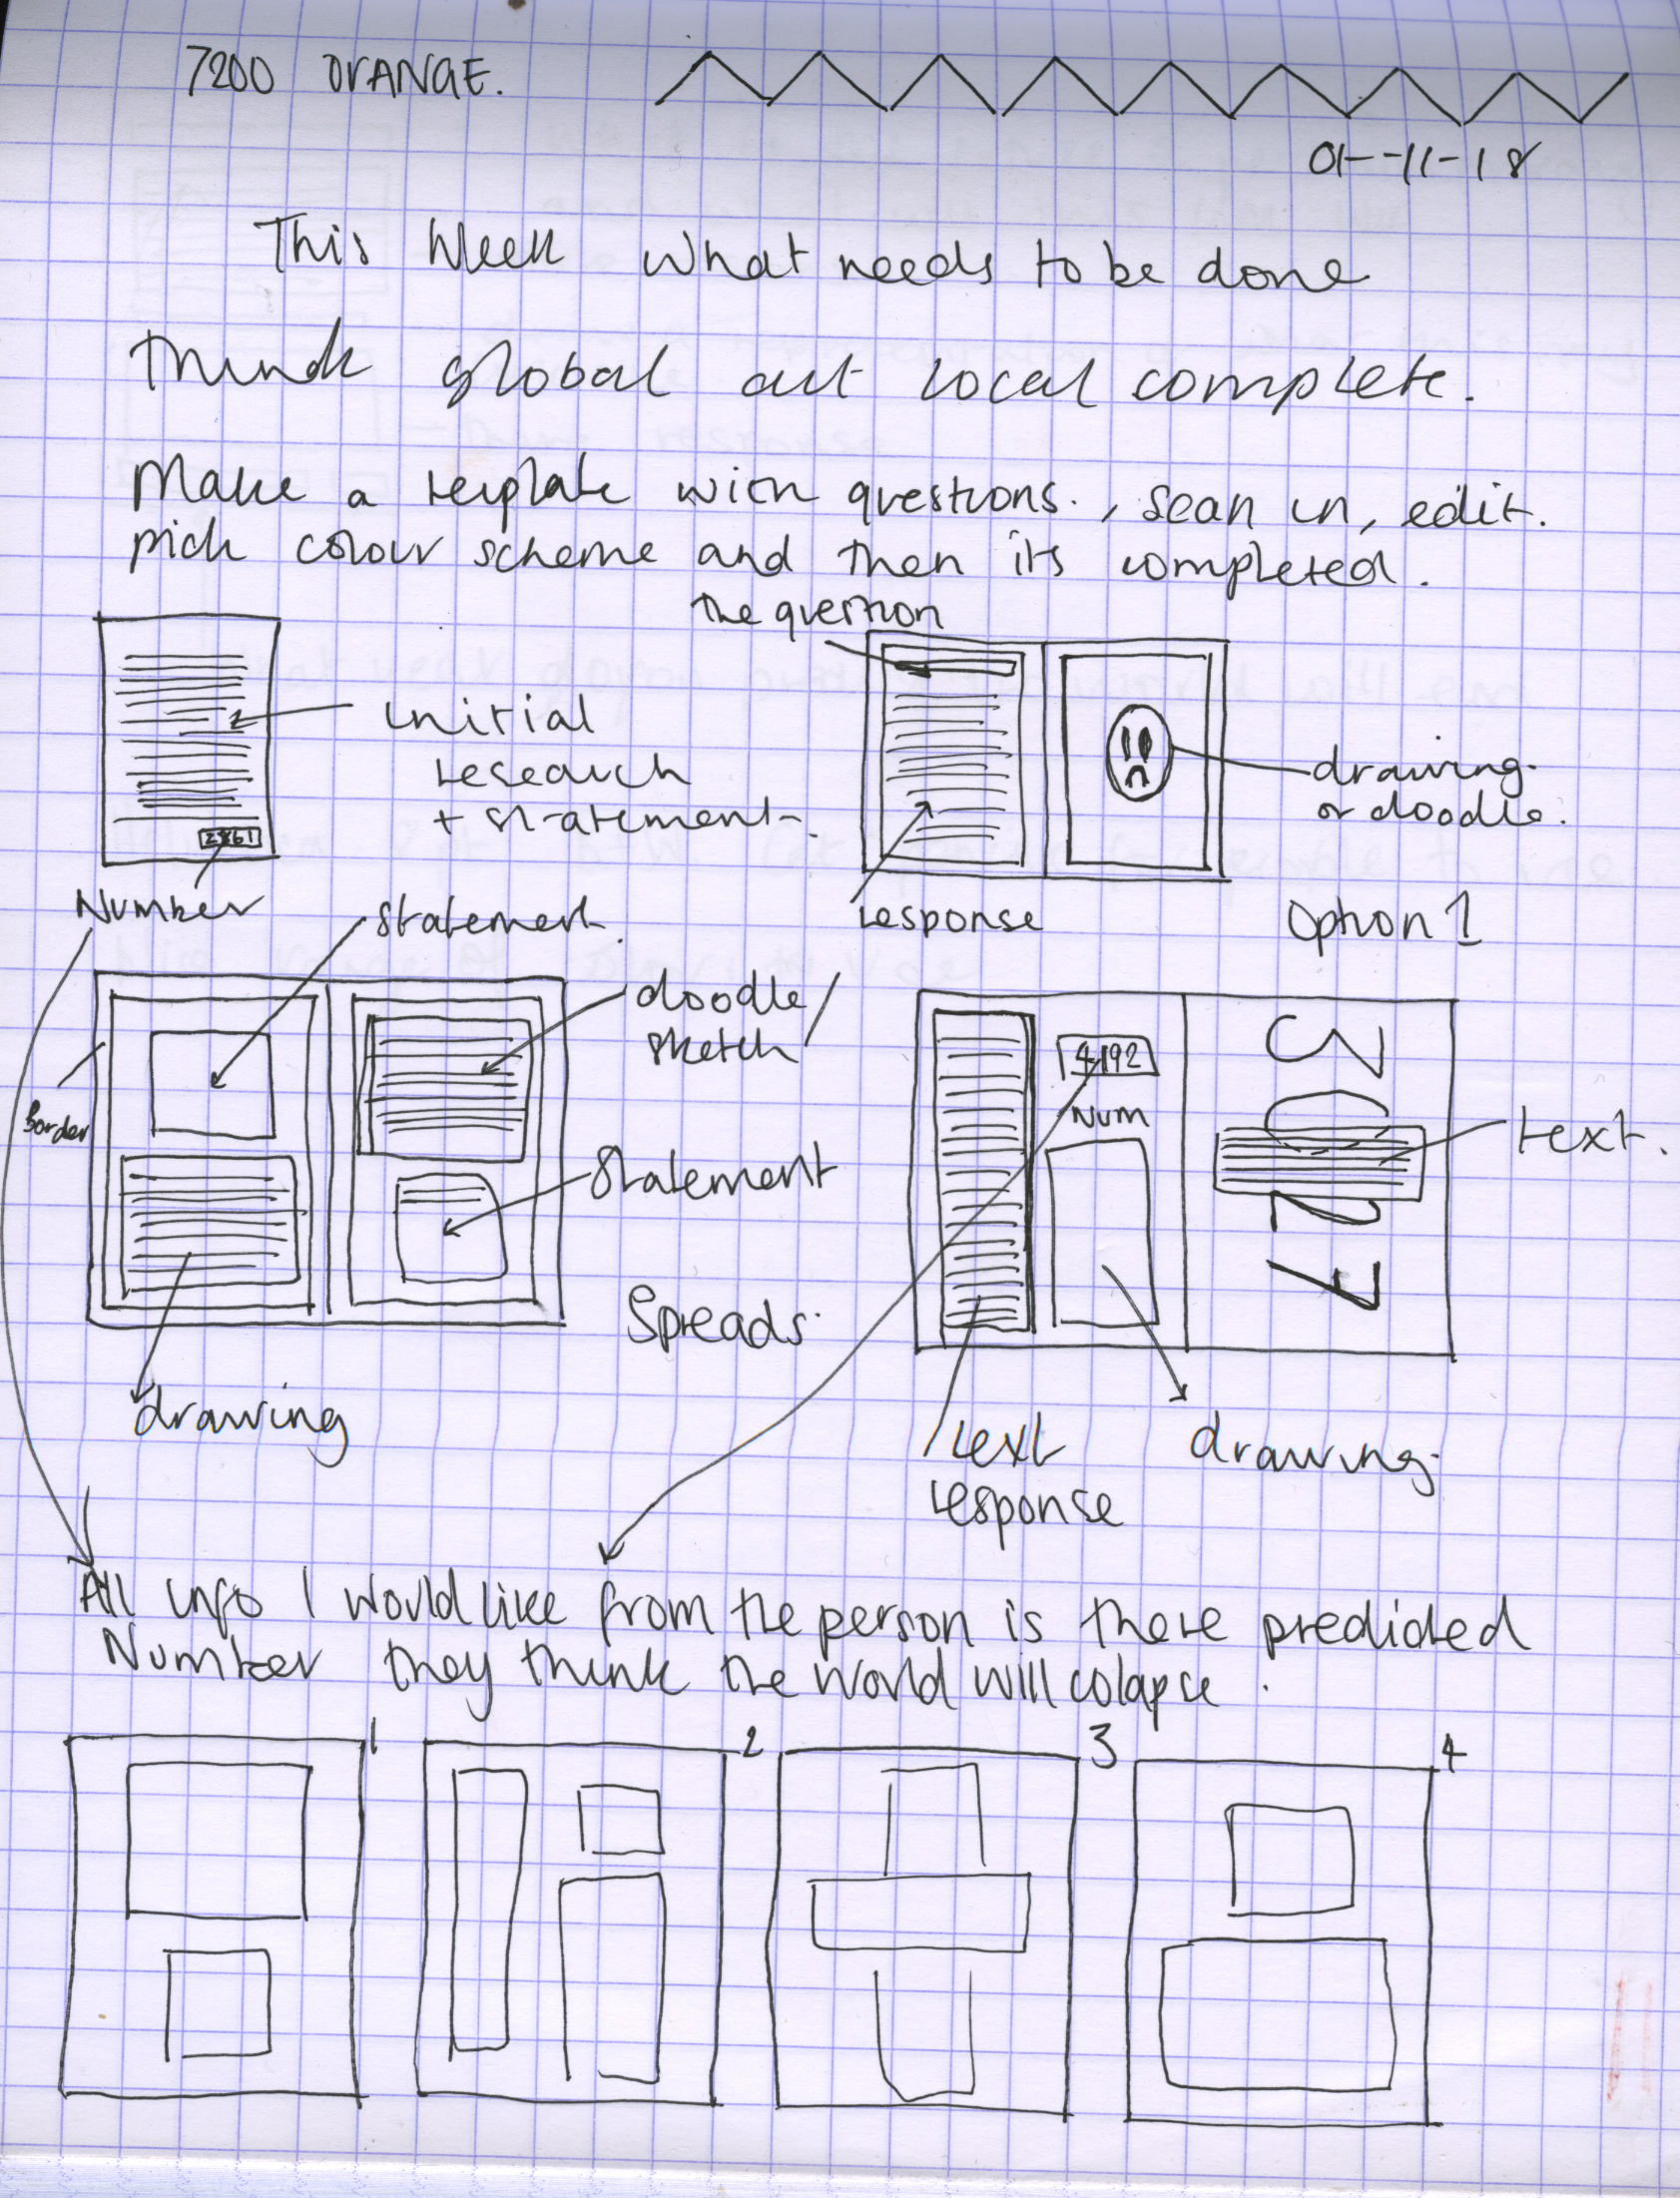 7200 ORANGE.
01-11-18
This Week what needs to be done
think global act local complete.
Make a template with questions., scan in, edit.
pick colour scheme and then its completed.
the question
initial
research
+ statement.
drawing
or doodle.
Number
statement.
response
Option 1
doodle/
sketch/
Border
4192
Num
text.
Statement
Spreads.
drawing
text
response
drawing.
All info I would like from the person is there predicted
Number they think the world will colapse.
1
2
3
4